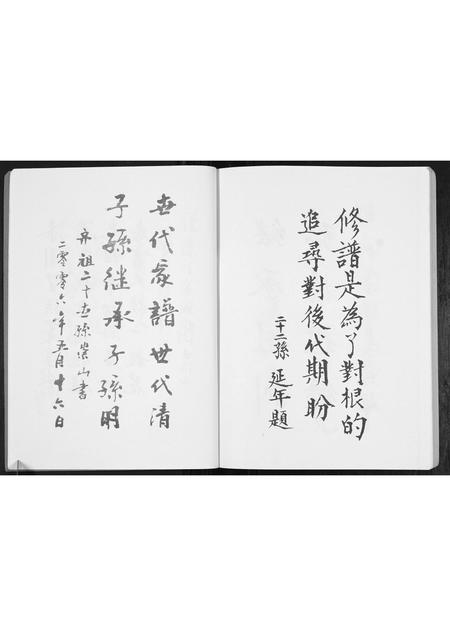 修譜是為了對根的
追尋對後代期盼
二十二孫 延年題
世代家譜世代清
子孫继承子孫明
齐祖二十世孫崇山書
二零零六年五月十六日